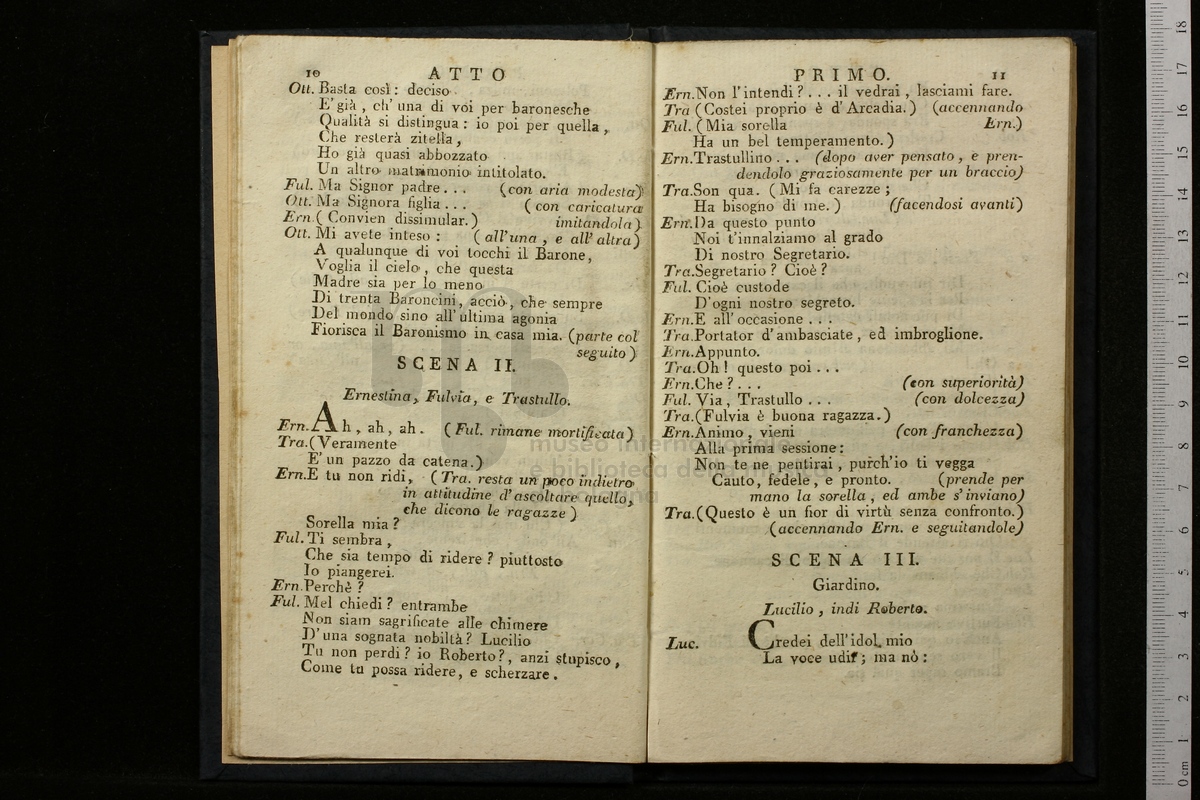 10 ATTO
Ott. Basta così: deciso
E' già, ch' una di voi per baronesche
Qualità si distingua: io poi per quella,
Che resterà zitella,
Ho già quasi abbozzato
Un altro matrimonio intitolato.
Ful. Ma Signor padre... (con aria modesta)
Ott. Ma Signora figlia... (con caricatura
Ern. (Convien dissimular.) imitandola)
Ott. Mi avete inteso: (all'una, e all' altra)
A qualunque di voi tocchi il Barone,
Voglia il cielo, che questa
Madre sia per lo meno
Di trenta Baroncini, acciò, che sempre
Del mondo sino all' ultima agonia
Fiorisca il Baronismo in casa mia. (parte col
seguito)
SCENA II.
Ernestina, Fulvia, e Trastullo.
Ern. Ah, ah, ah. (Ful. rimane mortificata)
Tra. (Veramente
E' un pazzo da catena.)
Ern. E tu non ridi, (Tra. resta un poco indietro
in attitudine d'ascoltare quello,
che dicono le ragazze)
Sorella mia?
Ful. Ti sembra,
Che sia tempo di ridere? piuttosto
Io piangerei.
Ern. Perchè?
Ful. Mel chiedi? entrambe
Non siam sagrificate alle chimere
D' una sognata nobiltà? Lucilio
Tu non perdi? io Roberto?, anzi stupisco,
Come tu possa ridere, e scherzare.
PRIMO. 11
Ern. Non l'intendi?... il vedrai, lasciami fare.
Tra (Costei proprio è d'Arcadia.) (accennando
Ful. (Mia sorella Ern.)
Ha un bel temperamento.)
Ern. Trastullino... (dopo aver pensato, e pren-
dendolo graziosamente per un braccio)
Tra. Son qua. (Mi fa carezze;
Ha bisogno di me.) (facendosi avanti)
Ern. Da questo punto
Noi t'innalziamo al grado
Di nostro Segretario.
Tra. Segretario? Cioè?
Ful. Cioè custode
D'ogni nostro segreto.
Ern. E all' occasione...
Tra. Portator d'ambasciate, ed imbroglione.
Ern. Appunto.
Tra. Oh! questo poi...
Ern. Che?... (con superiorità)
Ful. Via, Trastullo... (con dolcezza)
Tra. (Fulvia è buona ragazza.)
Ern. Animo, vieni (con franchezza)
Alla prima sessione:
Non te ne pentirai, purch'io ti vegga
Cauto, fedele, e pronto. (prende per
mano la sorella, ed ambe s'inviano)
Tra. (Questo è un fior di virtù senza confronto.)
(accennando Ern. e seguitandole)
SCENA III.
Giardino.
Lucilio, indi Roberto.
Luc. Credei dell'idol mio
La voce udir; ma nò:
museo internazionale
e biblioteca della musica
0 cm 1 2 3 4 5 6 7 8 9 10 11 12 13 14 15 16 17 18